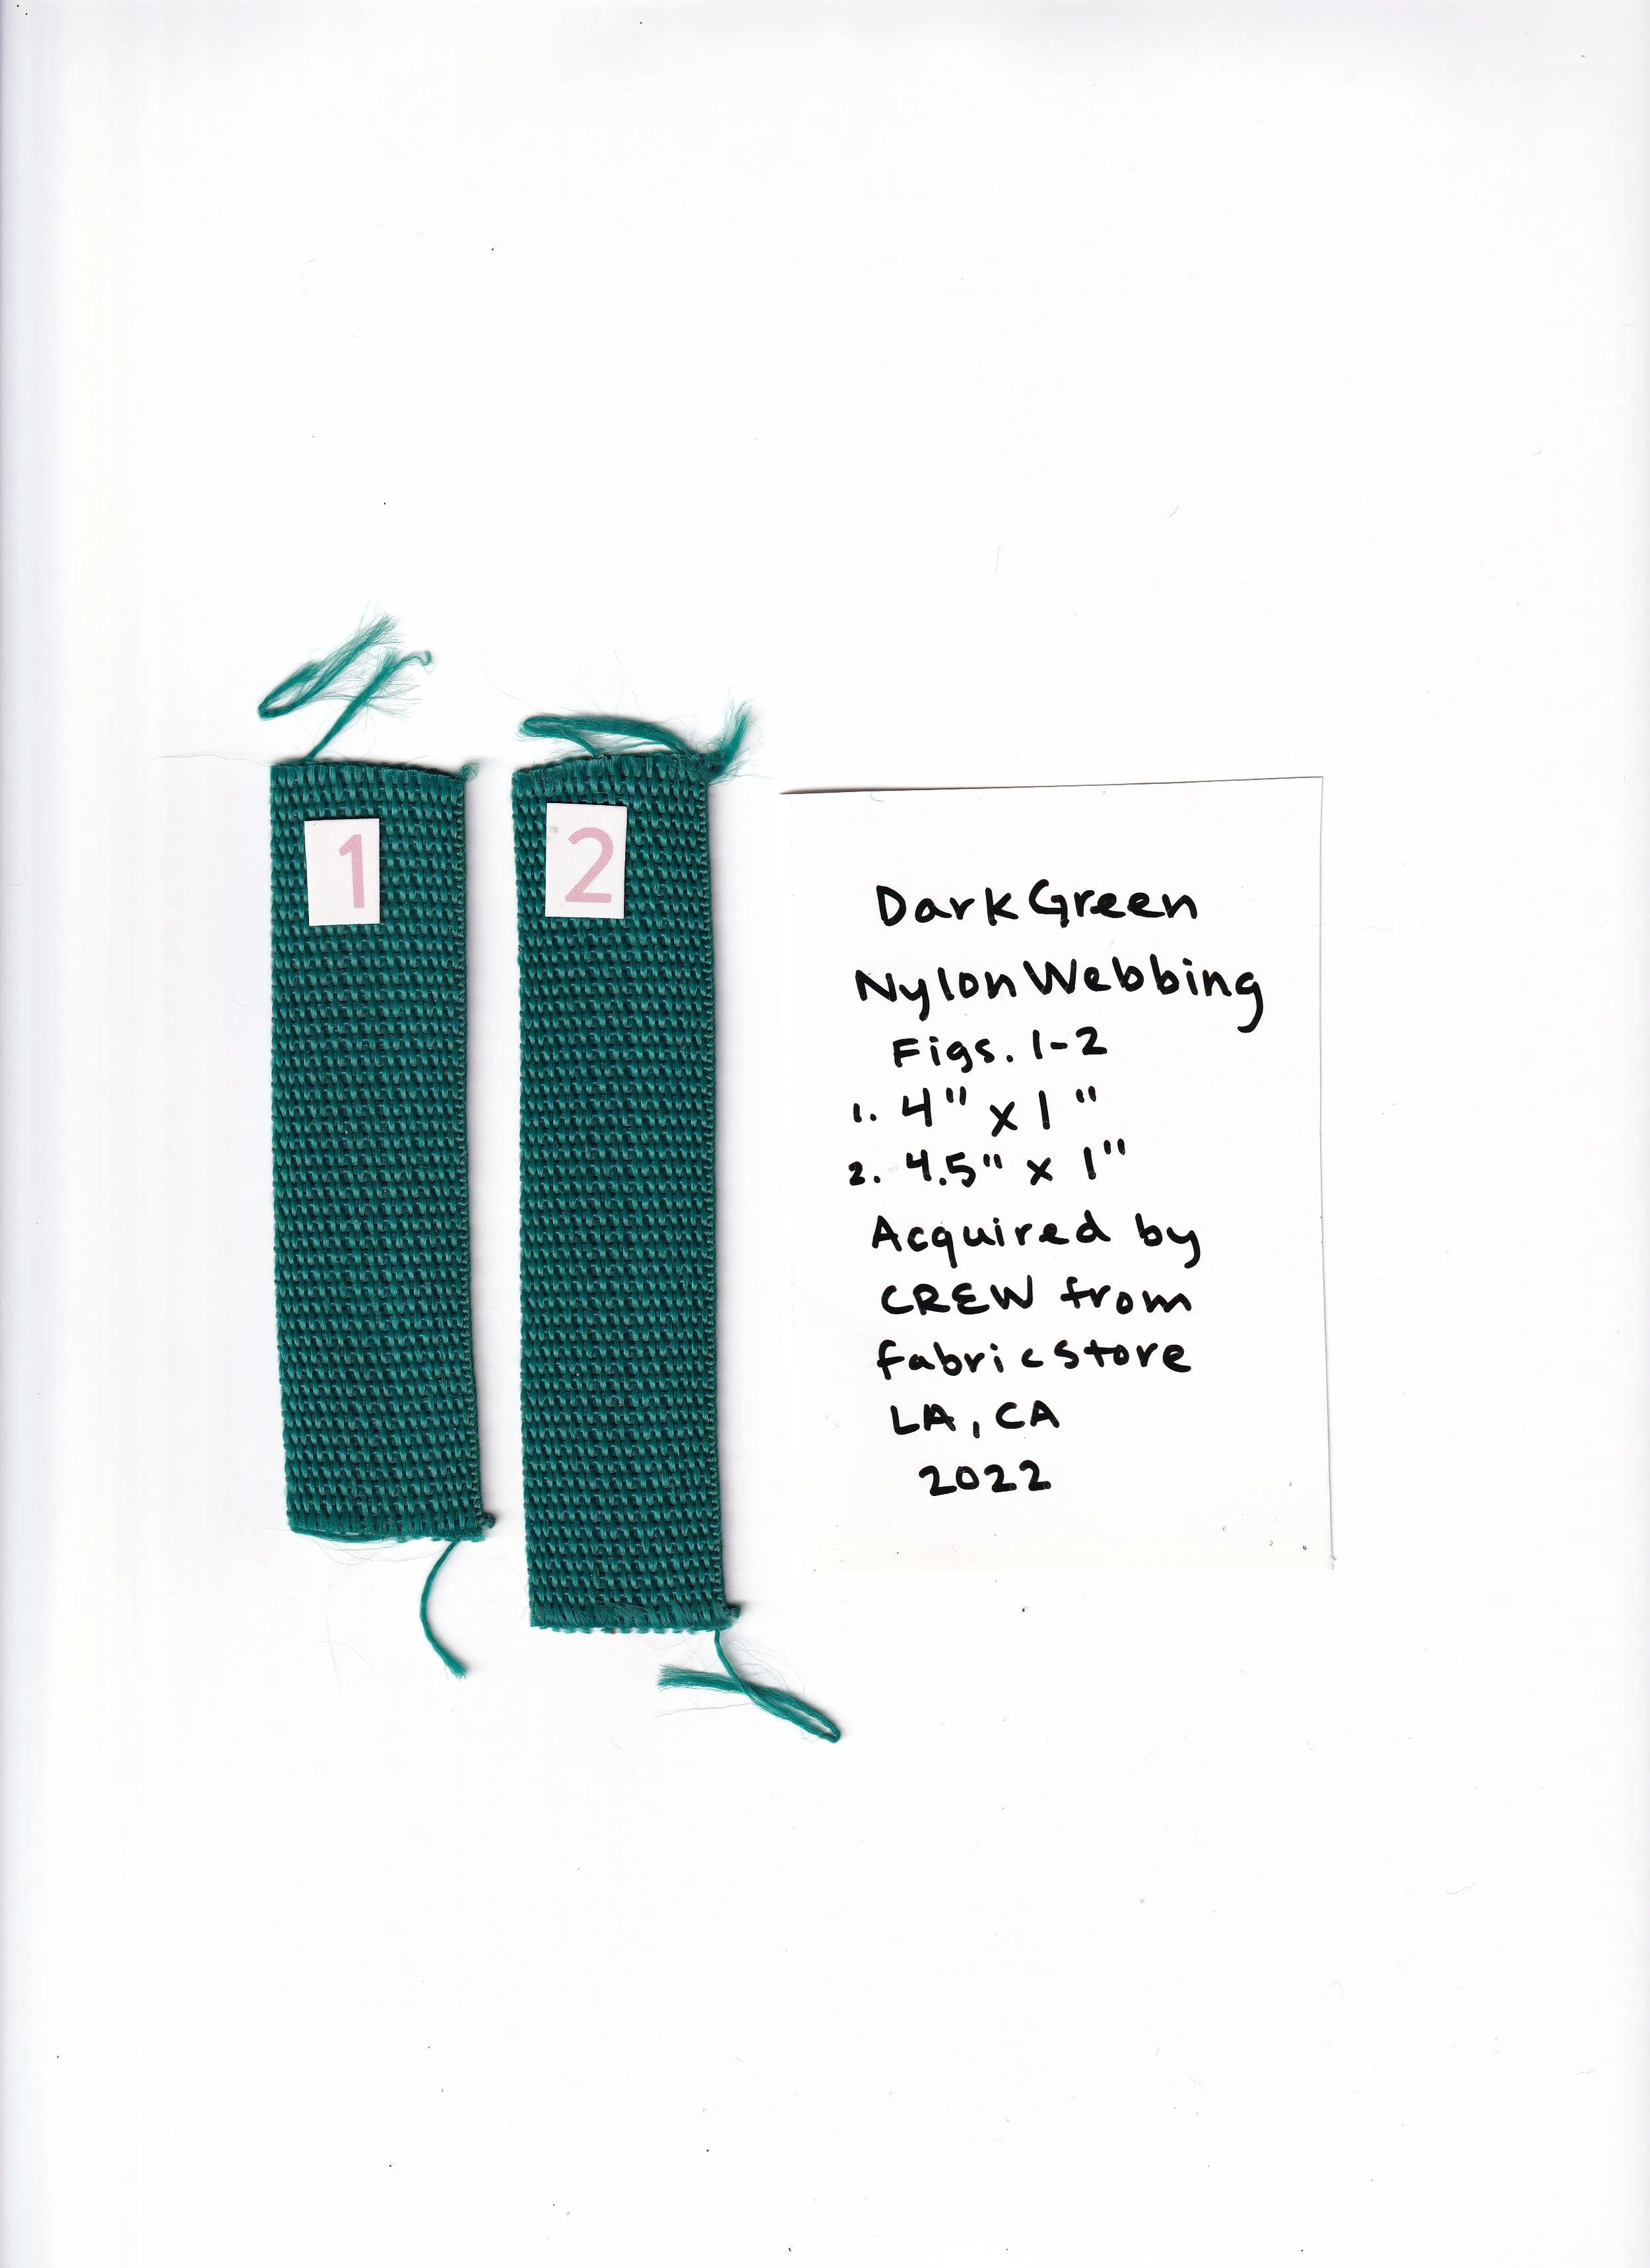 1
2
Dark Green
Nylon Webbing
Figs. 1-2
1. 4" x 1"
2. 4.5" x 1"
Acquired by
CREW from
fabric store
LA, CA
2022